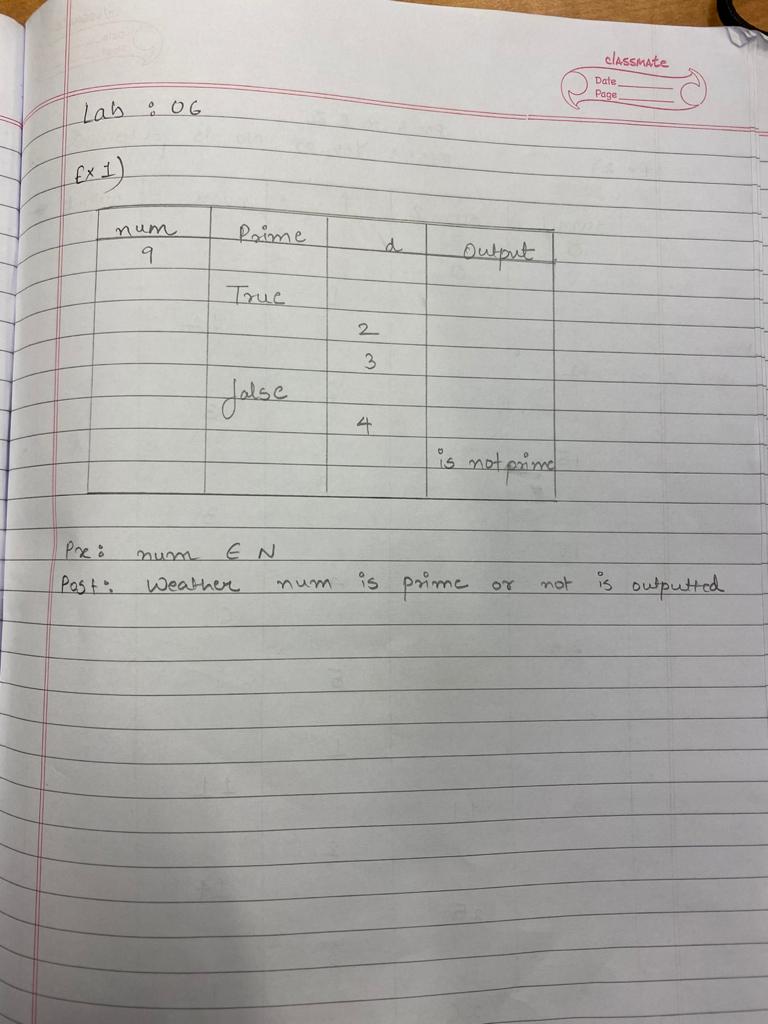 classmate
Date
Page
Lab : 06
Ex 1)
num Prime d Output
9
True
2
3
false
4
is not prime
Pre: num ∈ N
Post: Weather num is prime or not is outputted